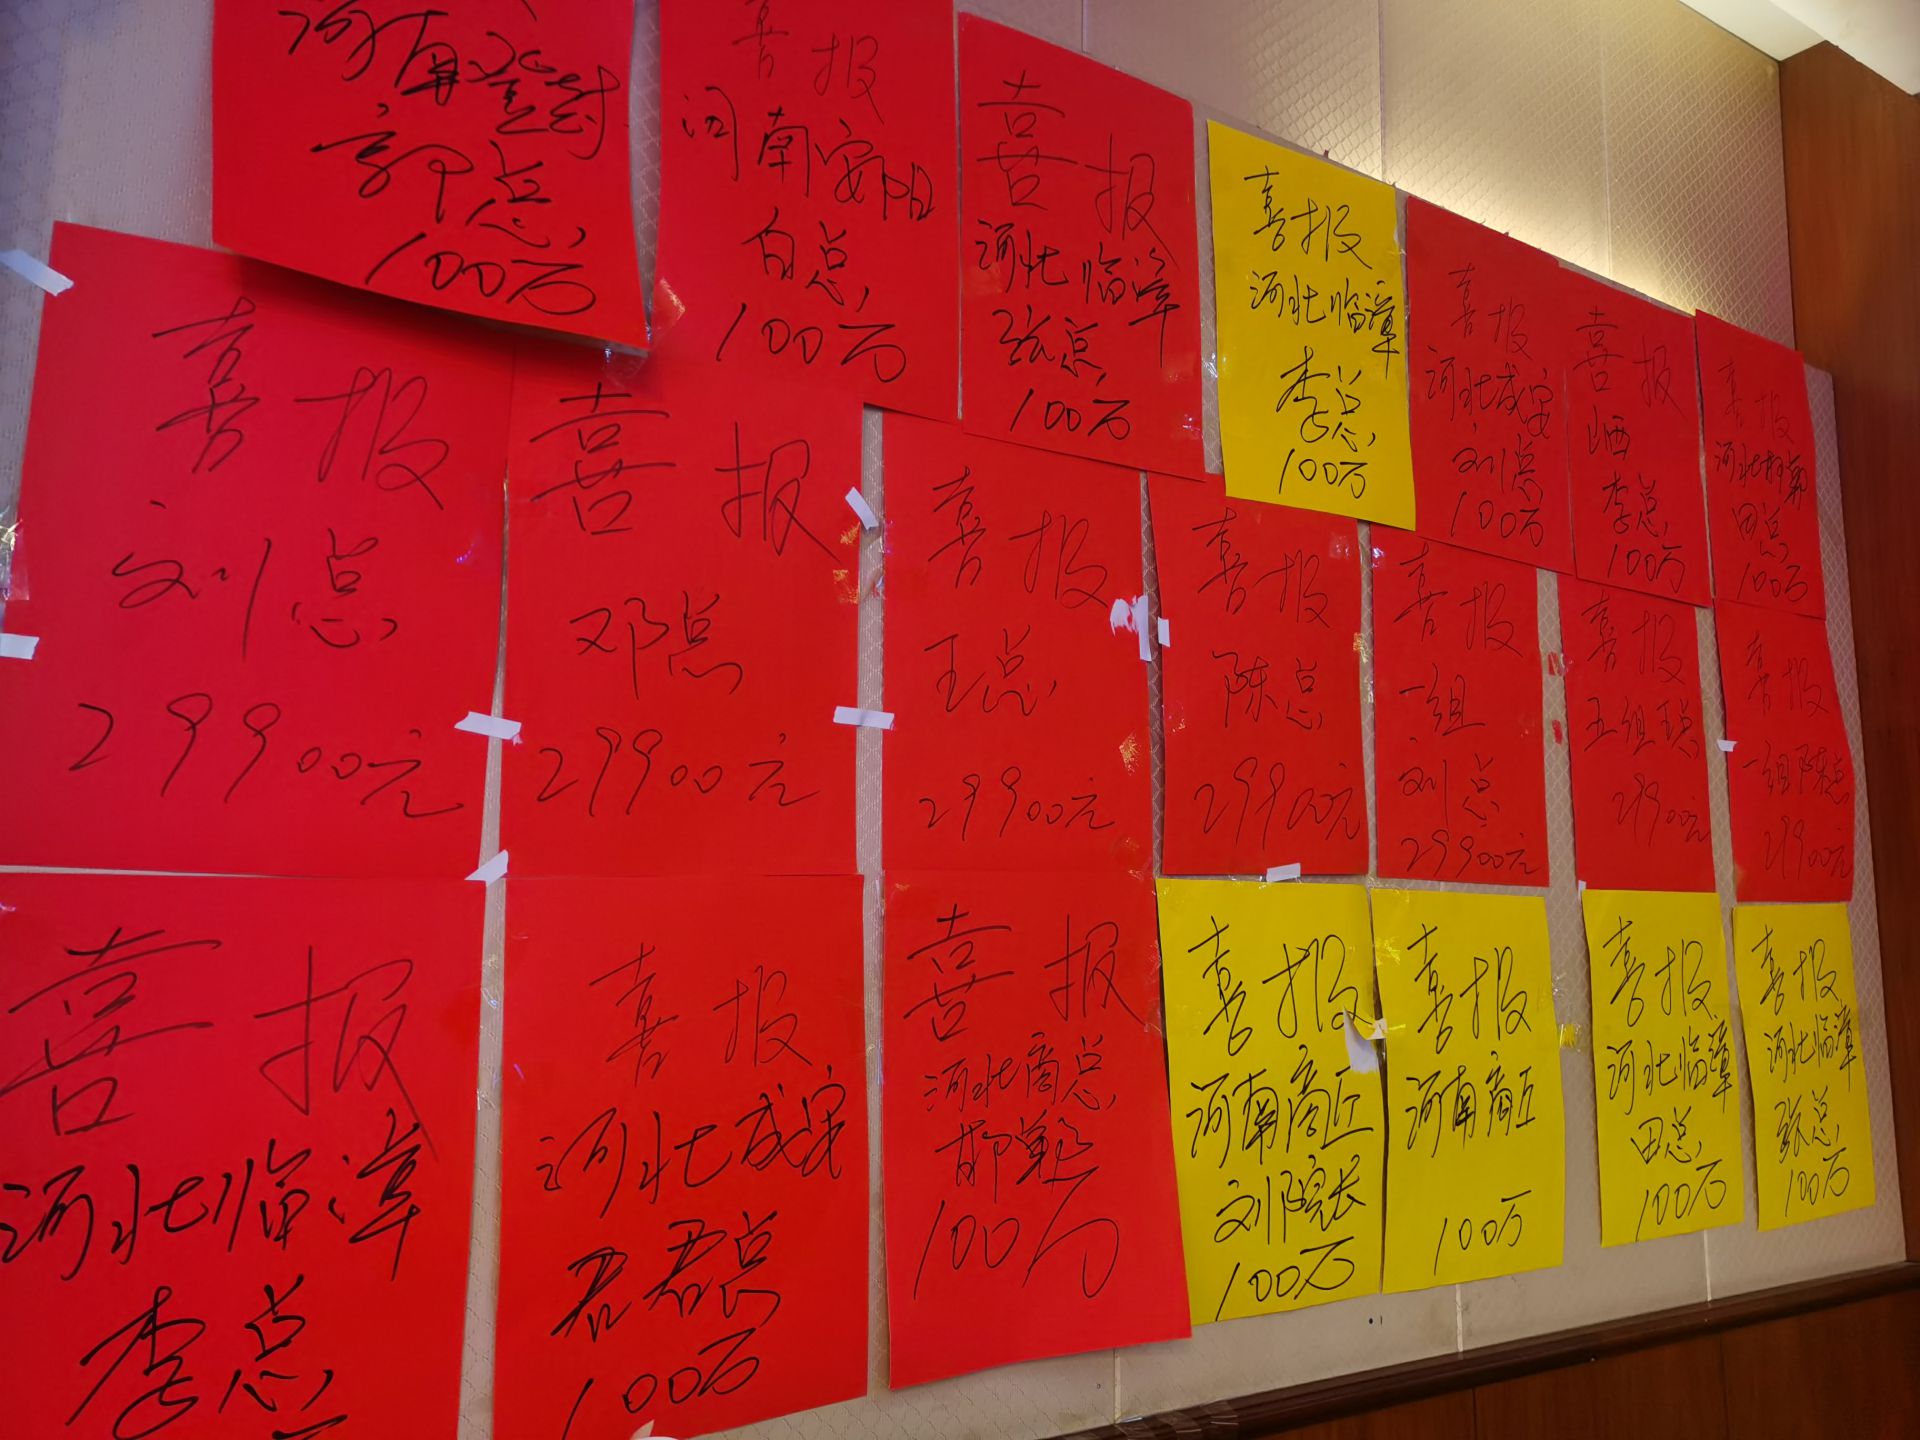 河南登封
郭总
100万
喜报
河南安阳
白总
100万
喜报
河北临漳
张总
100万
喜报
河北临漳
李总
100万
喜报
河北成安
刘总
100万
喜报
山西
李总
100万
喜报
河北邯郸
田总
100万
喜报
刘总
29900元
喜报
邓总
29900元
喜报
王总
29900元
喜报
陈总
29900元
喜报
一组
刘总
29900元
喜报
五组
29900元
喜报
一组陈总
29900元
喜报
河北临漳
李总
喜报
河北成安
君君总
100万
喜报
河北商总
邯郸
100万
喜报
河南商丘
刘院长
100万
喜报
河南商丘
100万
喜报
河北临漳
田总
100万
喜报
河北临漳
张总
100万